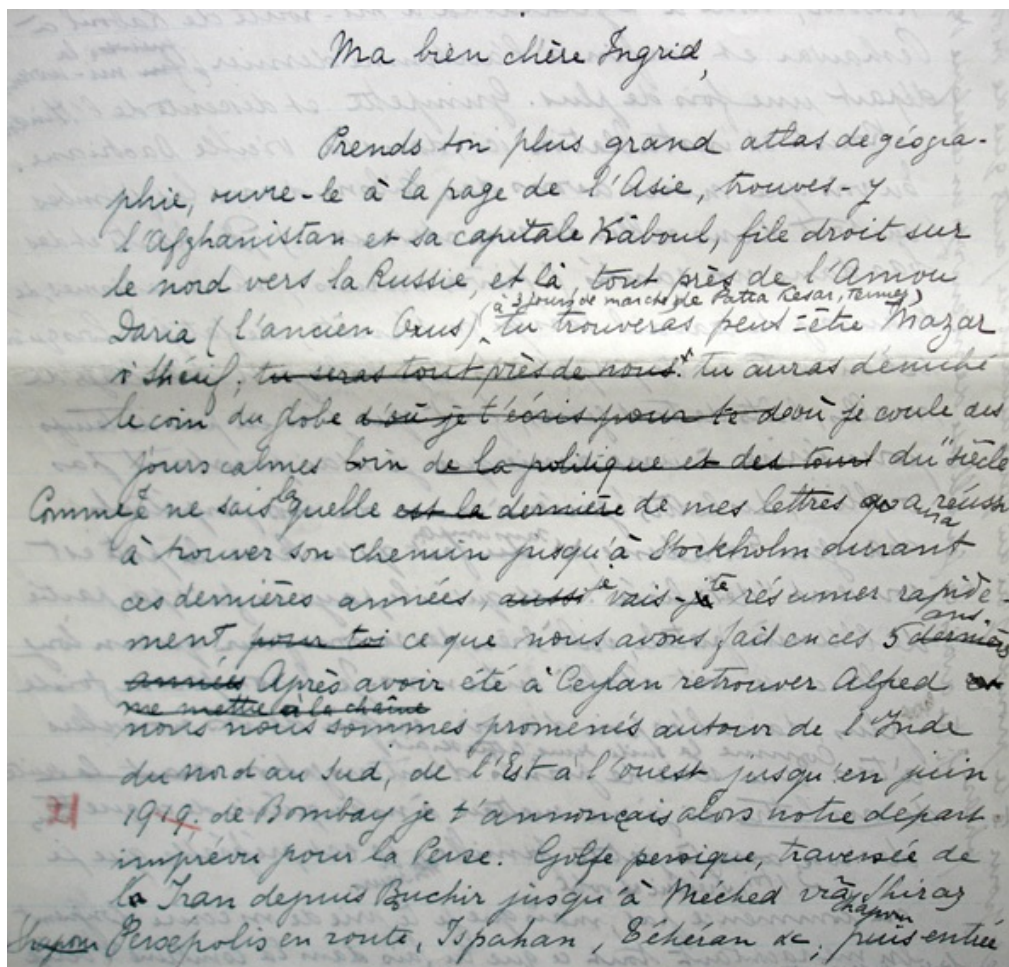 Ma bien chère Ingrid,
Prends ton plus grand atlas de géogra-
phie, ouvre-le à la page de l'Asie, trouves-y
l'Afghanistan et sa capitale Kâboul, file droit sur
le nord vers la Russie, et là, tout près de l'Amou
(à 3 jours de marche de Patta Kesar, Termes)
Daria (l'ancien Oxus) tu trouveras peut-être Mazar
i Shérif, tu seras tout près de nous. tu auras déniché
le coin du globe d'où je t'écris pour te d où je coule des
jours calmes loin de la politique et des tour du "siècle
Comme je ne sais laquelle est la dernière de mes lettres a réussi
à trouver son chemin jusqu'à Stockholm durant
ces dernières années, aussi je vais te résumer rapide-
ment pour toi ce que nous avons fait en ces 5 dernières ans.
années Après avoir été à Ceylan retrouver Alfred
me mettre à la chaîne
nous nous sommes promenés autour de l'Inde
du nord au sud, de l'Est à l'ouest jusqu'en juin
21 1919. de Bombay je t'annonçais alors notre départ
imprévu pour la Perse. Golfe persique, traversée de
Iran depuis Buchir jusqu'à Méched viâ Shiraz
Shapour Persepolis en route, Chapour Ispahan, Téhéran &c, puis entrée